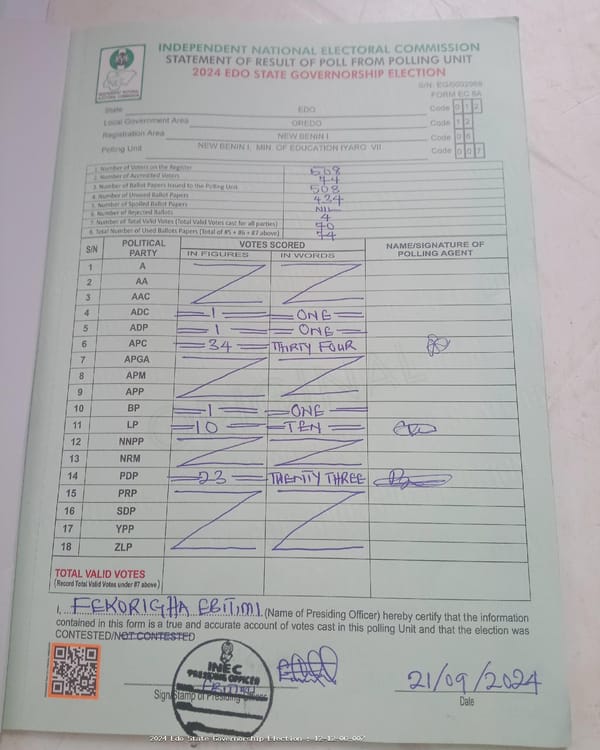 INDEPENDENT NATIONAL ELECTORAL COMMISSION
STATEMENT OF RESULT OF POLL FROM POLLING UNIT
2024 EDO STATE GOVERNORSHIP ELECTION
FORM EC 8A
State EDO Code 0 1 2
Local Government Area OREDO Code 1 2
Registration Area NEW BENIN I Code 0 6
Polling Unit NEW BENIN I, MIN. OF EDUCATION IYARO VII Code 0 0 7
1. Number of Voters on the Register 508
2. Number of Accredited Voters 74
3. Number of Ballot Papers Issued to the Polling Unit 508
4. Number of Unused Ballot Papers 434
5. Number of Spoiled Ballot Papers NIL
6. Number of Rejected Ballots 4
7. Number of Total Valid Votes (Total Valid Votes cast for all parties) 70
8. Total Number of Used Ballots Papers (Total of #5 + #6 + #7 above) 74
S/N POLITICAL PARTY VOTES SCORED NAME/SIGNATURE OF POLLING AGENT
IN FIGURES IN WORDS
1 A
2 AA
3 AAC
4 ADC 1 ONE
5 ADP 1 ONE
6 APC 34 THIRTY FOUR
7 APGA
8 APM
9 APP
10 BP 1 ONE
11 LP 10 TEN
12 NNPP
13 NRM
14 PDP 23 TWENTY THREE
15 PRP
16 SDP
17 YPP
18 ZLP
TOTAL VALID VOTES
(Record Total Valid Votes under #7 above)
I, EEKORIGHA EBITIMI (Name of Presiding Officer) hereby certify that the information
contained in this form is a true and accurate account of votes cast in this polling Unit and that the election was
CONTESTED/NOT CONTESTED
INEC
PRESIDING OFFICER
21/09/2024
Sign/Stamp of Presiding
Date
2024 Edo State Governorship Election : 12-12-06-007